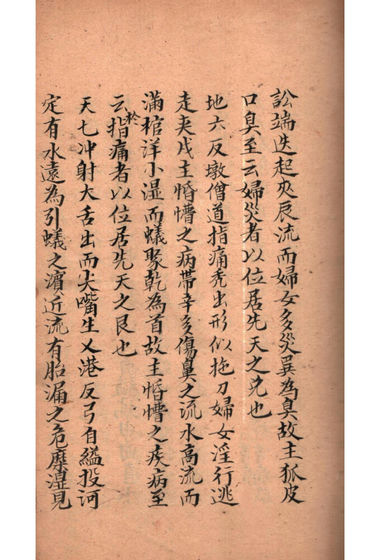 訟端迭起夾辰流而婦女多災巽為臭故主狐皮
口臭至云婦災者以位居先天之兌也
地六反墩僧道指痛禿出形似拖刀婦女淫行逃
走夾戌主惛懵之病帶辛多傷舅之流水高流而
滿棺洋小湿而蟻聚乾為首故主惛懵之疾病至
云於指痛者以位居先天之艮也
天七冲射大舌出而尖嘴生乂港反弓自縊投河
定有水遠為引蟻之濱近流有胎漏之危摩湿見